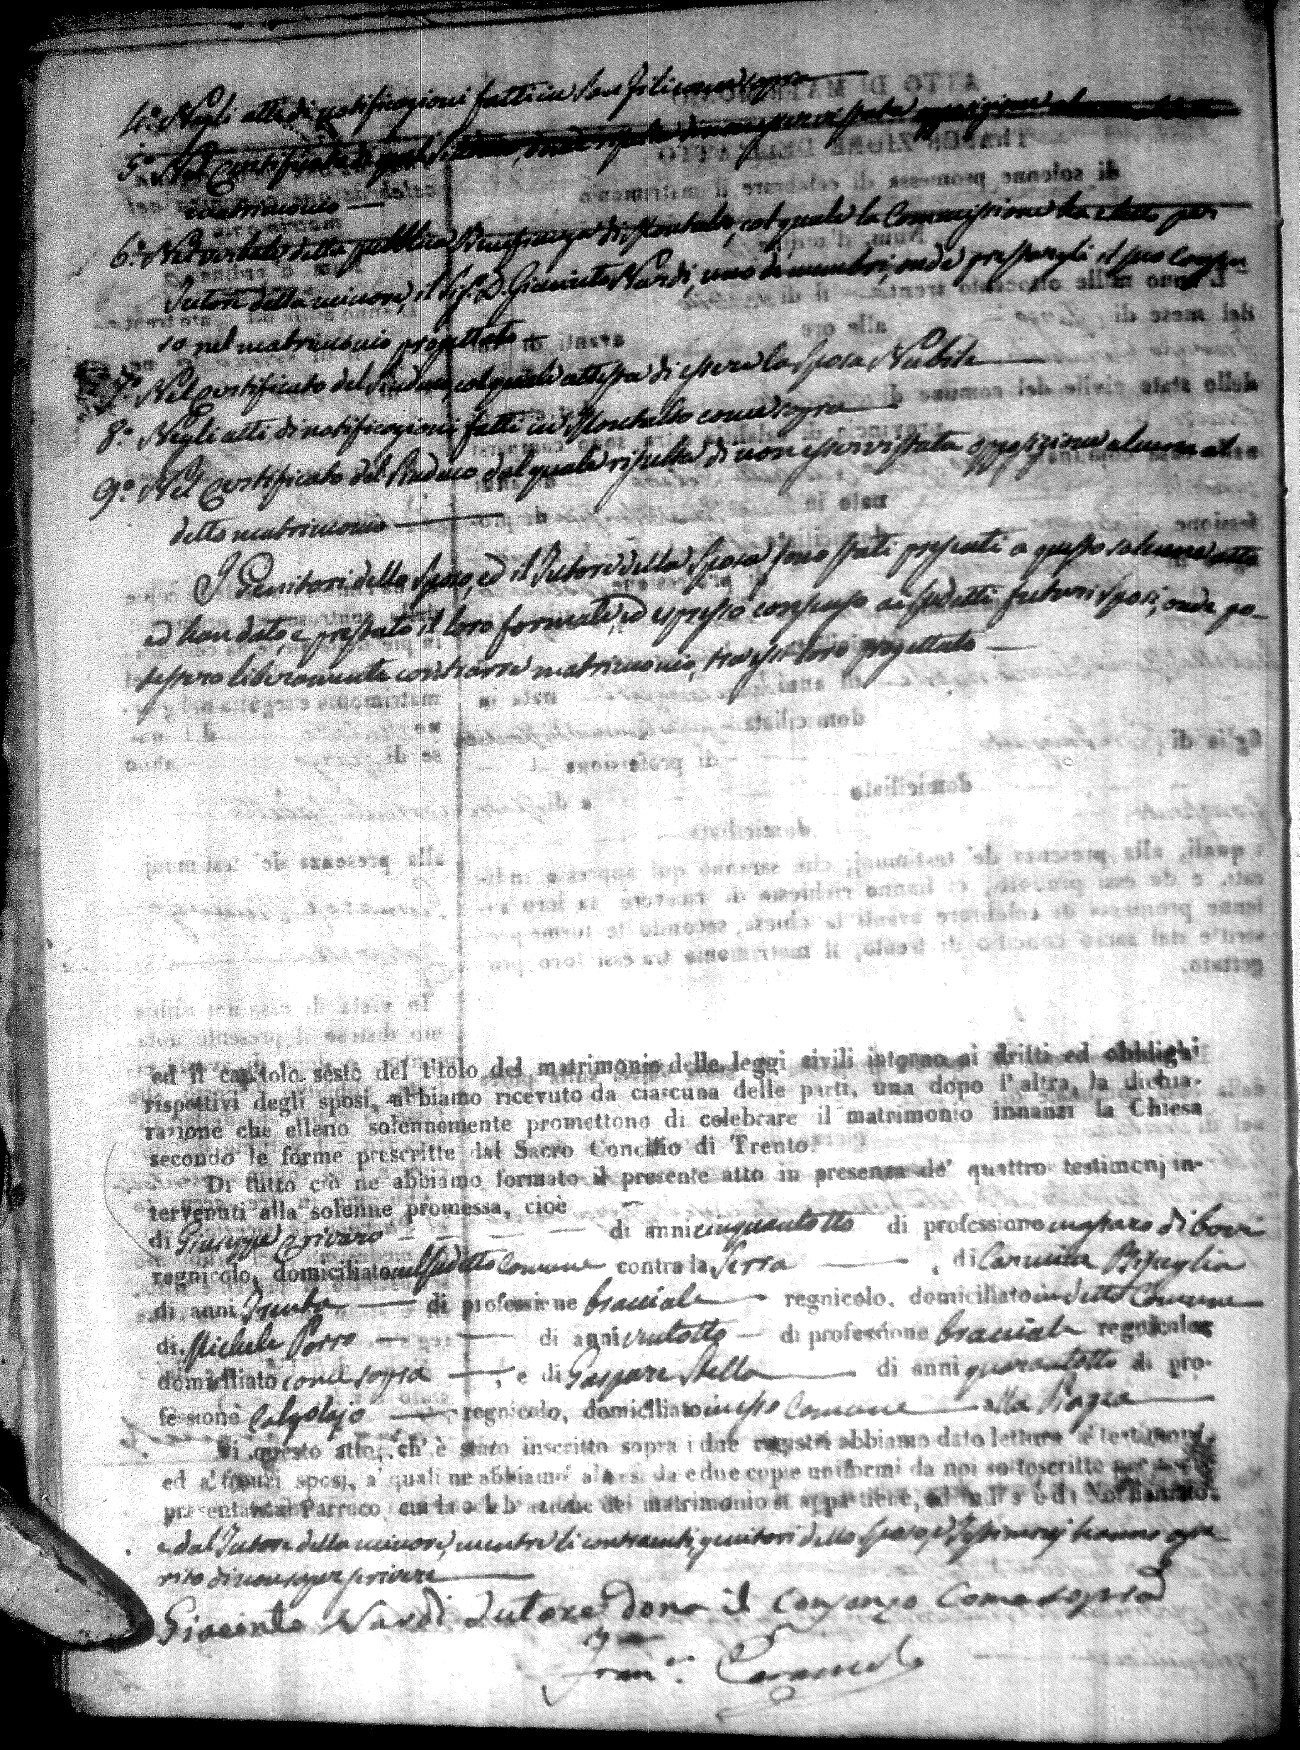 4.° Negli atti di notificazioni fatti in come sopra
5.° Nel certificato di
matrimonio
6.° Nel della pubblica Beneficenza di col quale la Commissione ha eletto per
Tutore della minore, il Sig. D. Giacinto Nardi, uno de' membri, onde prestargli il suo consen-
so nel matrimonio progettato
7.° Nel certificato del Sindaco, col quale attesta di essere la Sposa Nubile
8.° Negli atti di notificazioni fatti in come sopra
9.° Nel Certificato del Sindaco dal quale risulta di non esservi stata opposizione alcuna al
detto matrimonio
I Genitori dello Sposo, ed il Tutore della Sposa sono stati presenti a questo solenne atto
ed han dato, e prestato il loro formale, ed espresso consenso ai futuri sposi, onde po-
tessero liberamente contrarre matrimonio, tra essi loro progettato
ed il capitolo sesto del titolo del matrimonio delle leggi civili intorno ai dritti ed obblighi
rispettivi degli sposi, abbiamo ricevuto da ciascuna delle parti, una dopo l'altra, la dichia-
razione che elleno solennemente promettono di celebrare il matrimonio innanzi la Chiesa
secondo le forme prescritte dal Sacro Concilio di Trento.
Di tutto ciò ne abbiamo formato il presente atto in presenza de' quattro testimonj in-
tervenuti alla solenne promessa, cioè
di Giuseppe di anni cinquantotto di professione massaro di bovi
regnicolo, domiciliato nel suddetto Comune contrada Serra , di Carmine Bisceglia
di anni Trenta di professione bracciale regnicolo, domiciliato in detto Comune
di Michele Porro di anni ventotto di professione bracciale regnicolo
domiciliato come sopra , e di Gaspare Stella di anni quarantotto di pro-
fessione Calzolajo regnicolo, domiciliato in esso Comune alla Piazza
Di questo atto, ch'è stato inscritto sopra i due registri abbiamo dato lettura a' testimonj,
ed a' futuri sposi, a' quali ne abbiamo altresì date due copie uniformi da noi sottoscritte per
presentarsi al Parroco cui la celebrazione del matrimonio si appartiene, ed
e dal Tutore della minore, mentre li contraenti, genitori dello sposo, e Testimonj hanno asse-
rito di non saper scrivere
Giacinto Nardi Tutore dona il consenzo come sopra
Fran.co